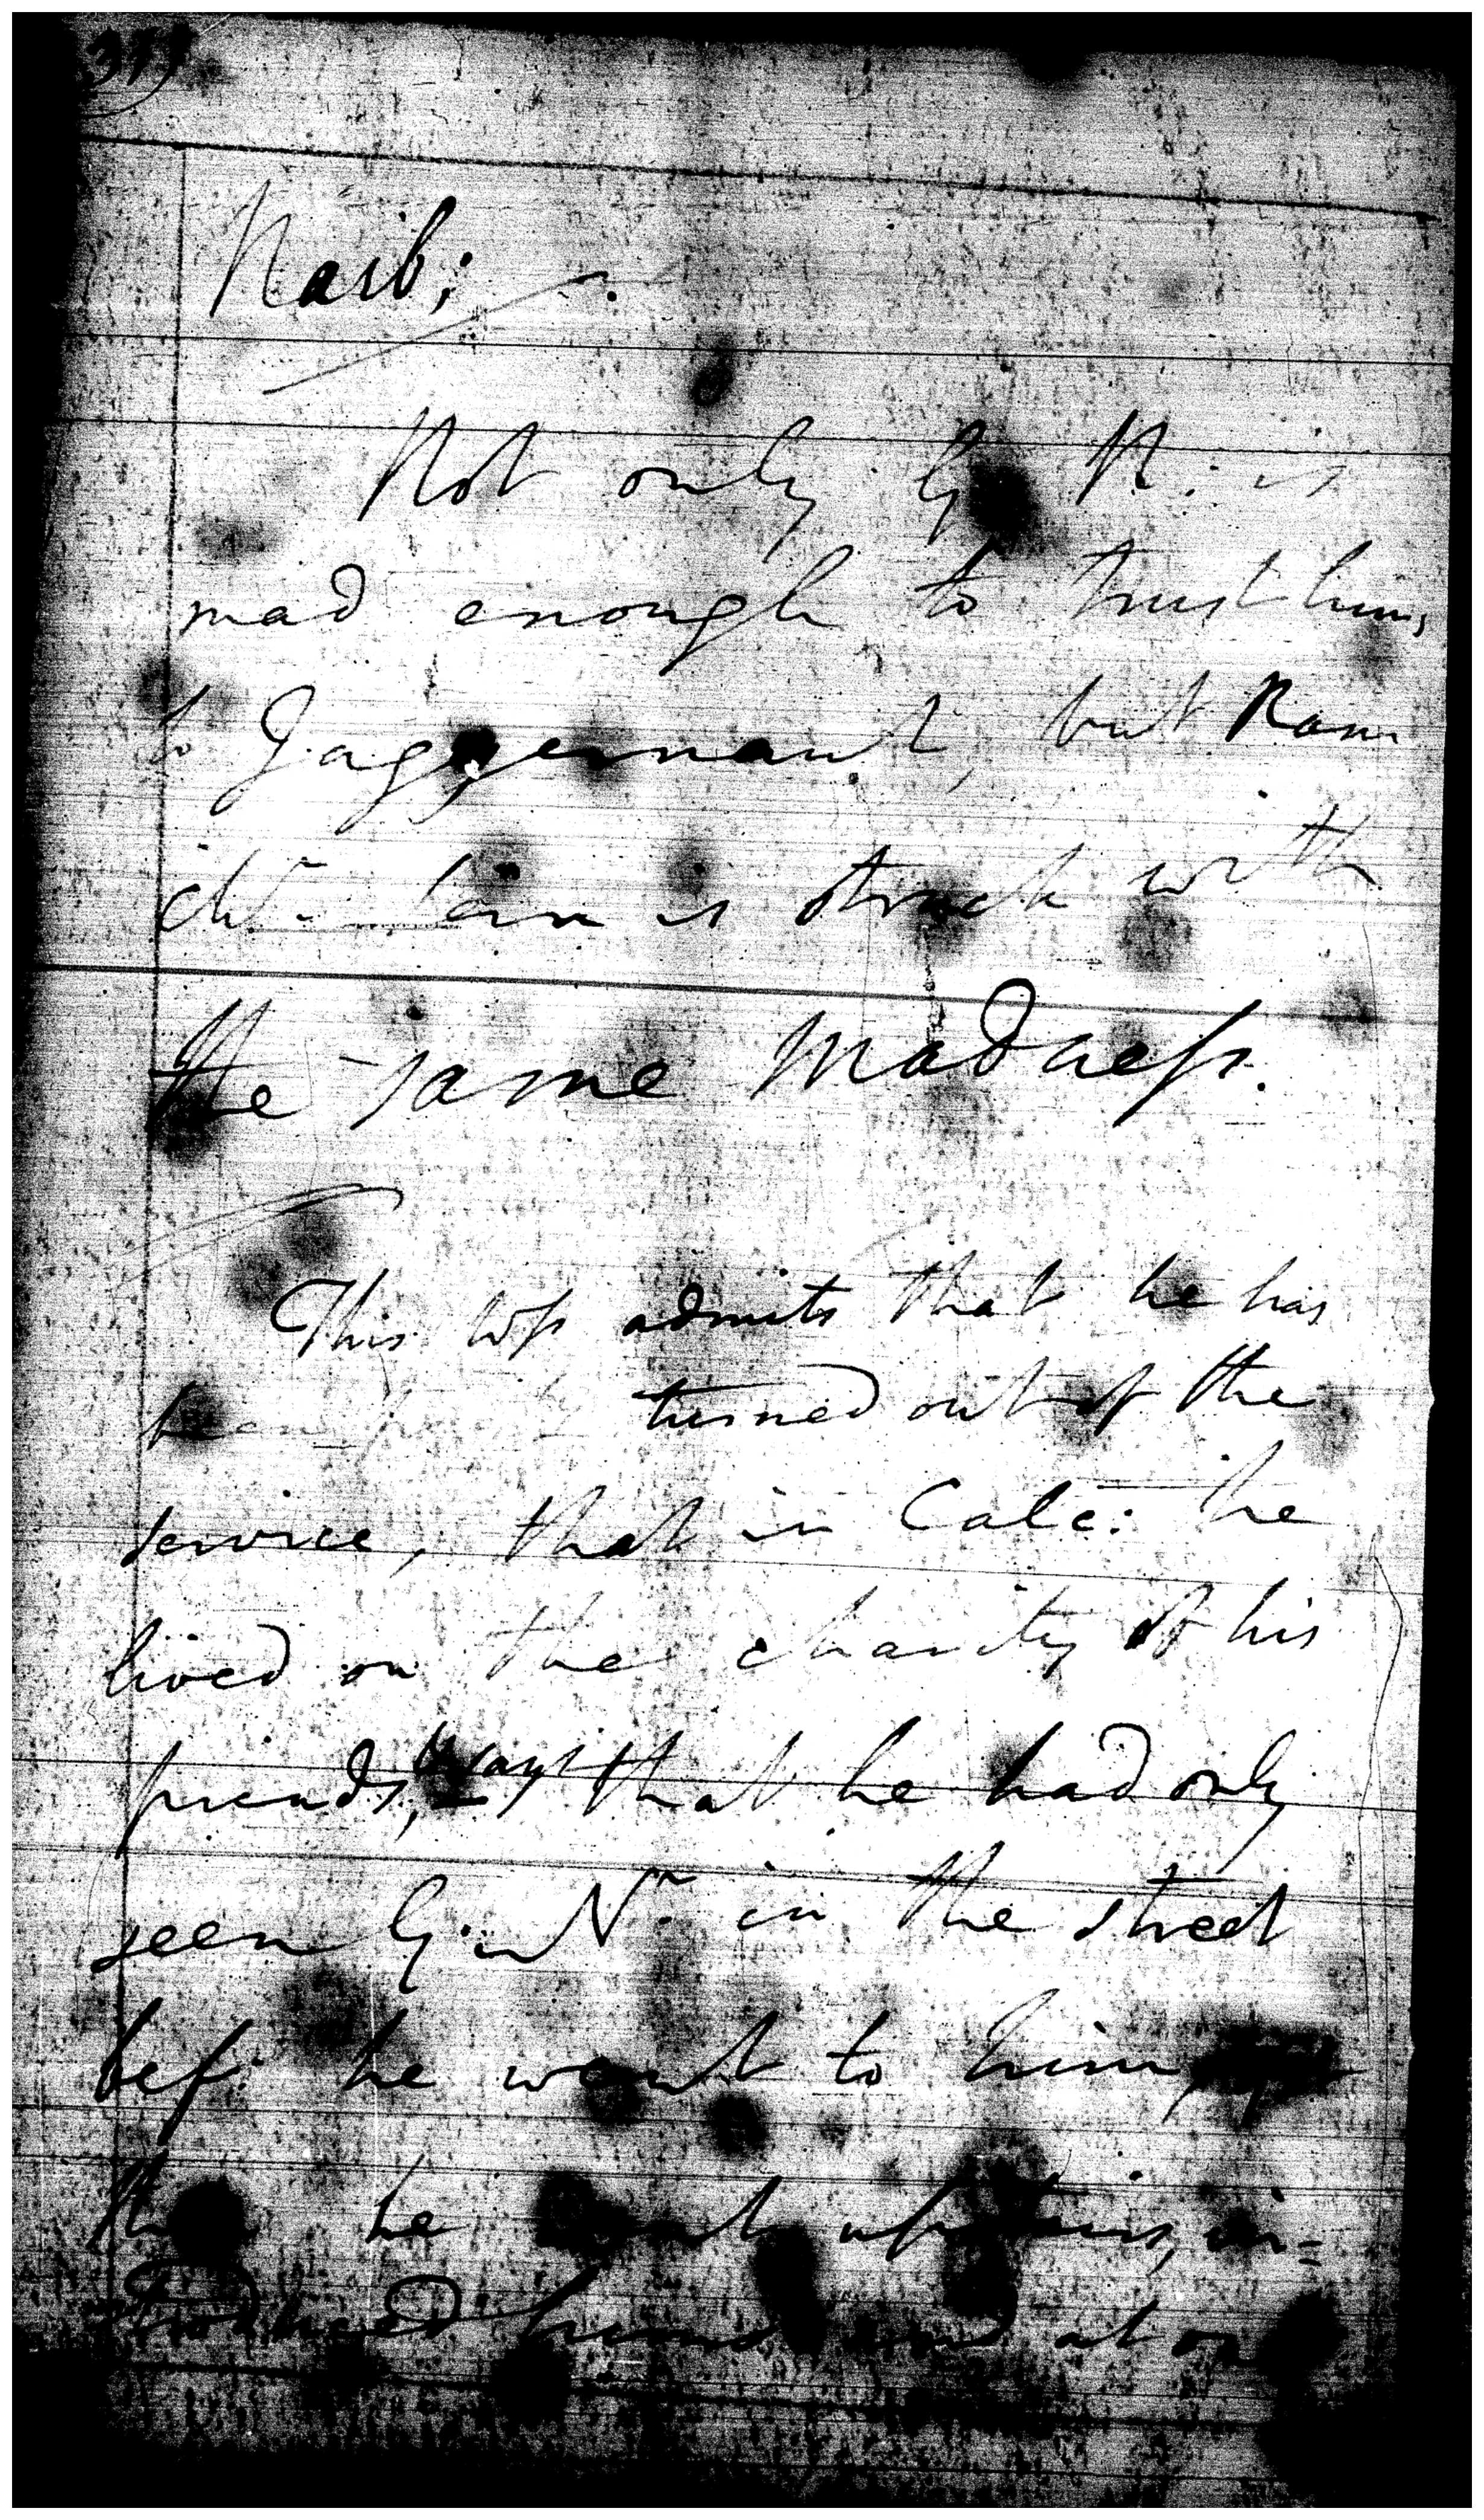 Naib;
Not only G. N. is
mad enough to trust him,
to Jaggernaut, but Ram
ch.r is struck with
the same madness.
This wss admits that he has
been turned out of the
service, that in Calc: he
lived on the charity of his
friends, & says that he had only
seen G. N. in the street
bef. he went to him,
he went upstairs, in=
troduced himself and at on